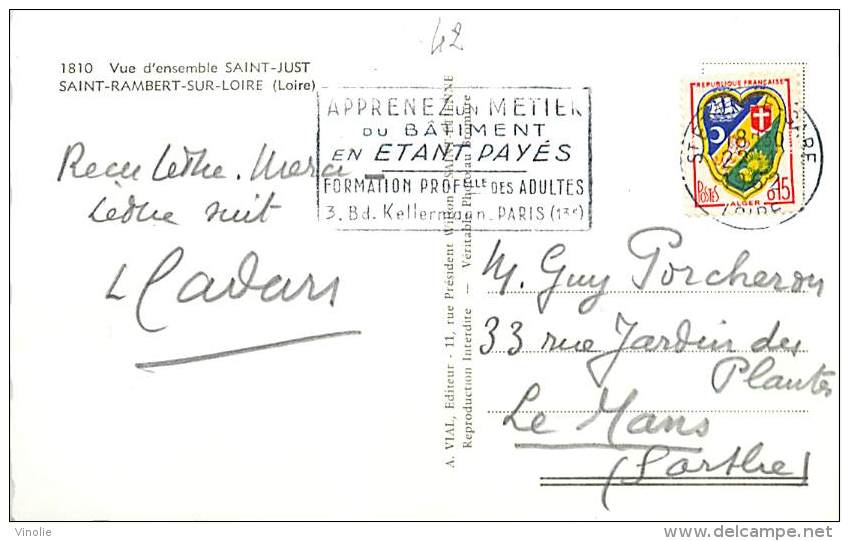 42
1810 Vue d'ensemble SAINT-JUST
SAINT-RAMBERT-SUR-LOIRE (Loire)
APPRENEZ UN METIER
DU BÂTIMENT
EN ETANT PAYÉS
FORMATION PROFelle DES ADULTES
3. Bd. Kellermann. PARIS (13e)
REPUBLIQUE FRANÇAISE
POSTES
0,15
ALGER
LOIRE
Recu lettre. Merci
lettre suit
Cadars
A. VIAL, Editeur - 11, rue Président Wilson
Reproduction Interdite — Véritable Photo au Bromure
M. Guy Porcheron
33 rue Jardin des
Plantes
Le Mans
(Sarthe)
Vinolie
www.delcampe.net